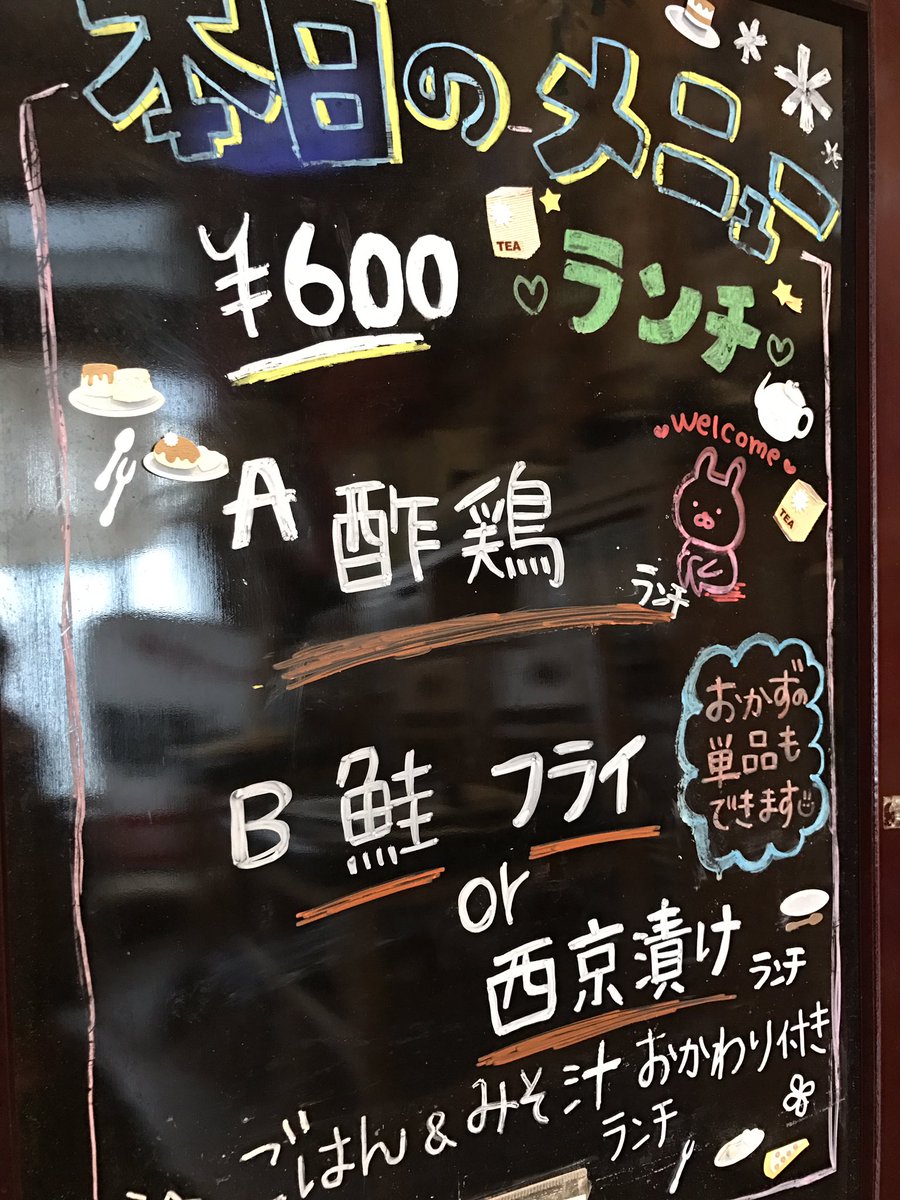 本日のメニュー
¥600
ランチ
TEA
welcome
A 酢鶏
ランチ
TEA
おかずの
単品も
できます
B 鮭 フライ
or
西京漬け
ランチ
ごはん&みそ汁 おかわり付き
ランチ